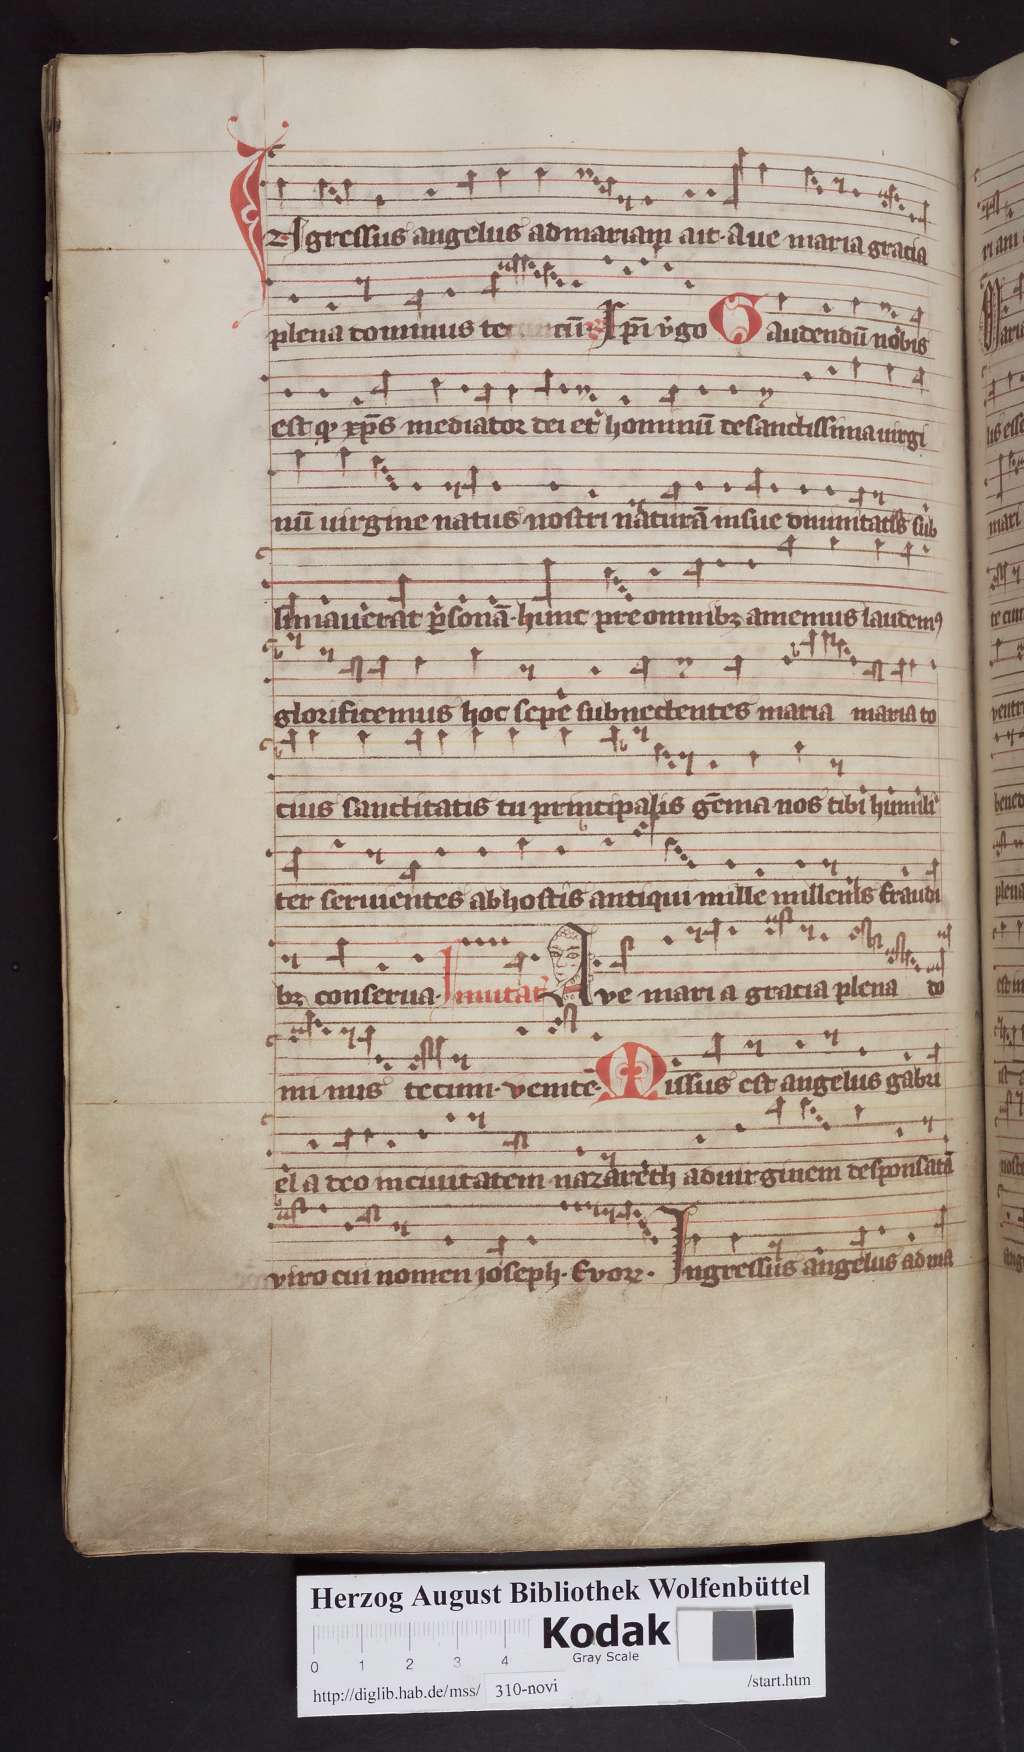 INgressus angelus ad mariam ait· aue maria gracia
plena dominus tecum Ip̄i v̄go Gaudendū nobis
est qͥ xp̄s mediator dei et hominū de sanctissima uirgi
nū uirgine natus nostri naturā in sue diuinitatis sub
limauerat p̄sonā· hunc p̄re omnibꝫ amemus laudemꝰ
glorificemus hoc sepe subnectentes maria maria to
cius sanctitatis tu principalis gēma nos tibi humili
ter seruientes ab hostis antiqui mille millenis fraudi
bꝫ conserua· Inuitat̄ Aue maria gracia plena do
minus tecum· venite· Missus est angelus gabri
el a deo in ciuitatem nazareth ad uirginem desponsatā
viro cui nomen ioseph· Evorr· Ingressus angelus ad ma
Herzog August Bibliothek Wolfenbüttel
Kodak
Gray Scale
0 1 2 3 4
http://diglib.hab.de/mss/ 310-novi /start.htm